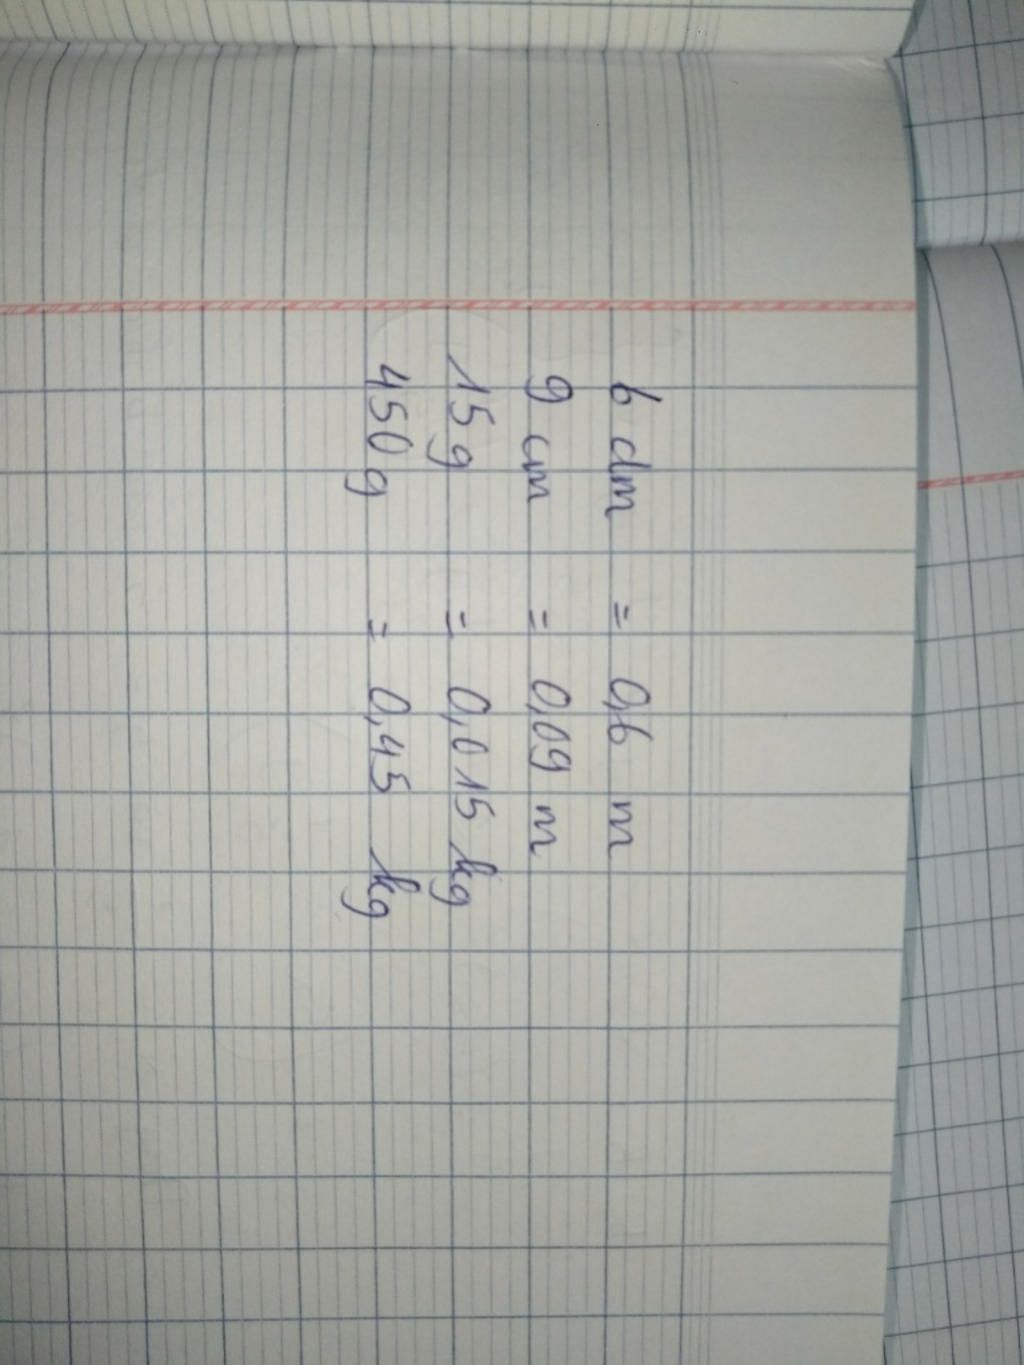 6 dm = 0,6 m
9 cm = 0,09 m
15 g = 0,015 kg
450 g = 0,45 kg